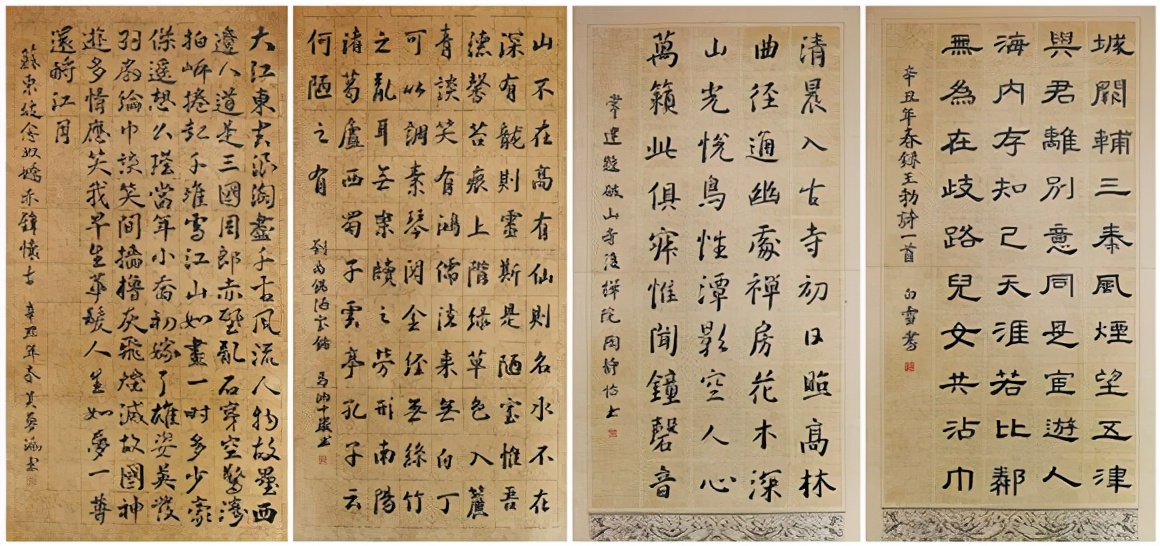 大江東去浪淘盡千古風流人物故壘西
邊人道是三國周郎赤壁亂石穿空驚濤
拍岸捲起千堆雪江山如畫一時多少豪
傑遙想公瑾當年小喬初嫁了雄姿英發
羽扇綸巾談笑間檣櫓灰飛煙滅故國神
遊多情應笑我早生華髮人生如夢一尊
還酹江月
蘇東坡念奴嬌赤壁懷古 辛丑年春
山不在高有仙則名水不在
深有龍則靈斯是陋室惟吾
德馨苔痕上階綠草色入簾
青談笑有鴻儒往來無白丁
可以調素琴閱金經無絲竹
之亂耳無案牘之勞形南陽
諸葛廬西蜀子雲亭孔子云
何陋之有
劉禹錫陋室銘
清晨入古寺初日照高林
曲徑通幽處禪房花木深
山光悅鳥性潭影空人心
萬籟此俱寂惟聞鐘磬音
常建題破山寺後禪院
城闕輔三秦風煙望五津
與君離別意同是宦遊人
海內存知己天涯若比鄰
無為在歧路兒女共沾巾
辛丑年春錄王勃詩一首 白雪書